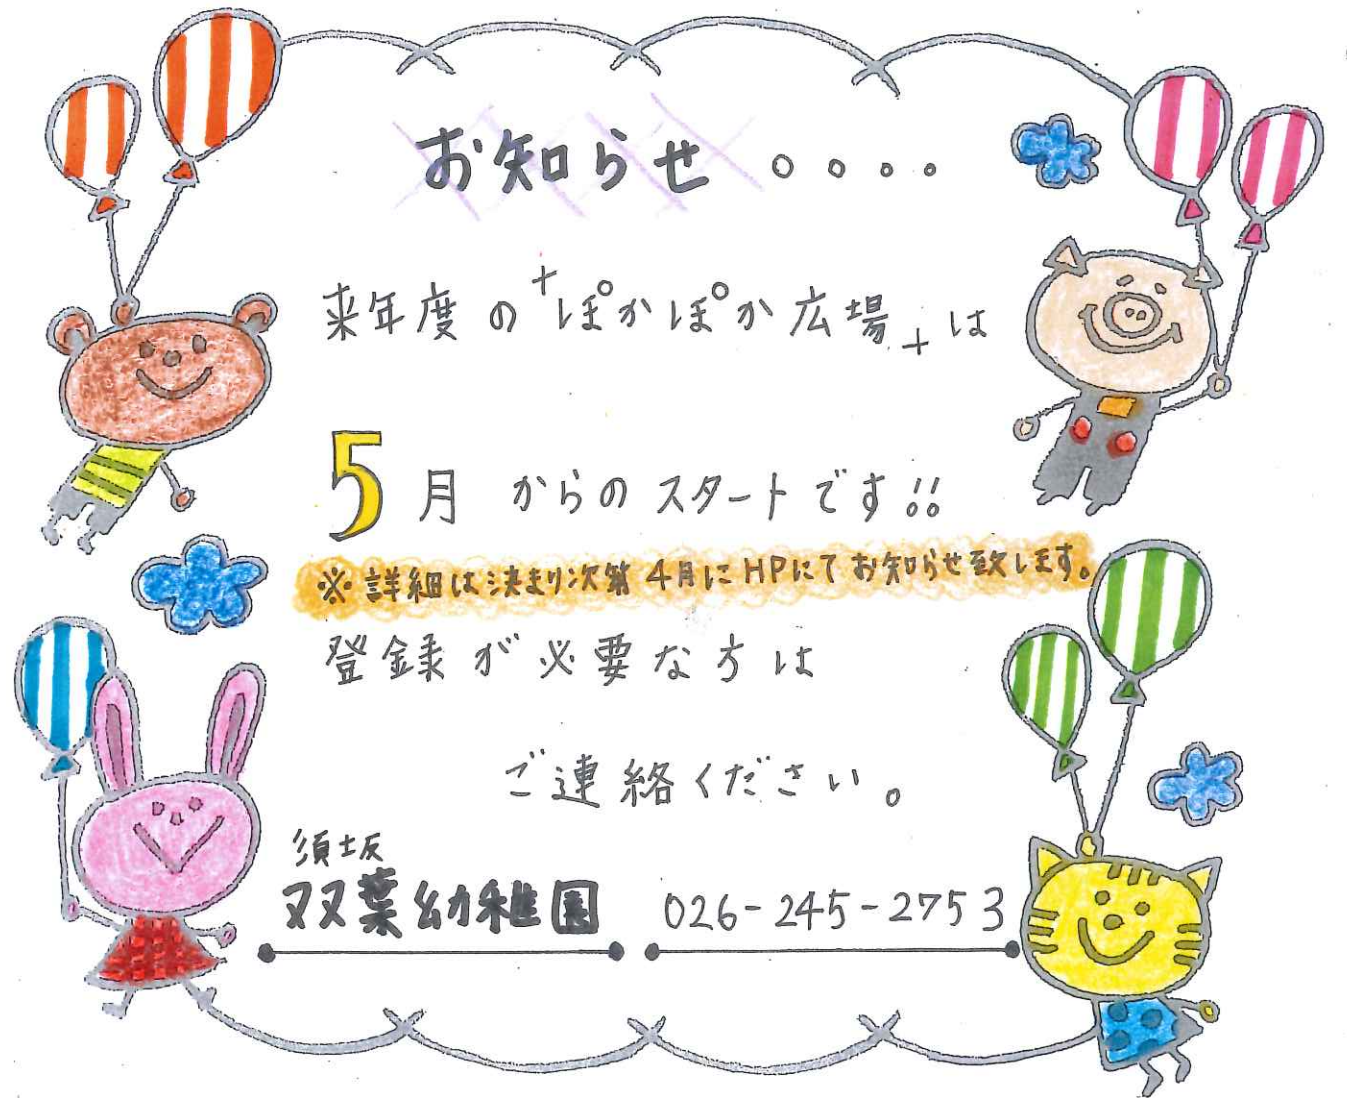 お知らせ。。。。
来年度の+ぽかぽか広場+は
5月からのスタートです!!
※詳細は決まり次第4月にHPにてお知らせ致します。
登録が必要な方は
ご連絡ください。
須坂
双葉幼稚園 026-245-2753